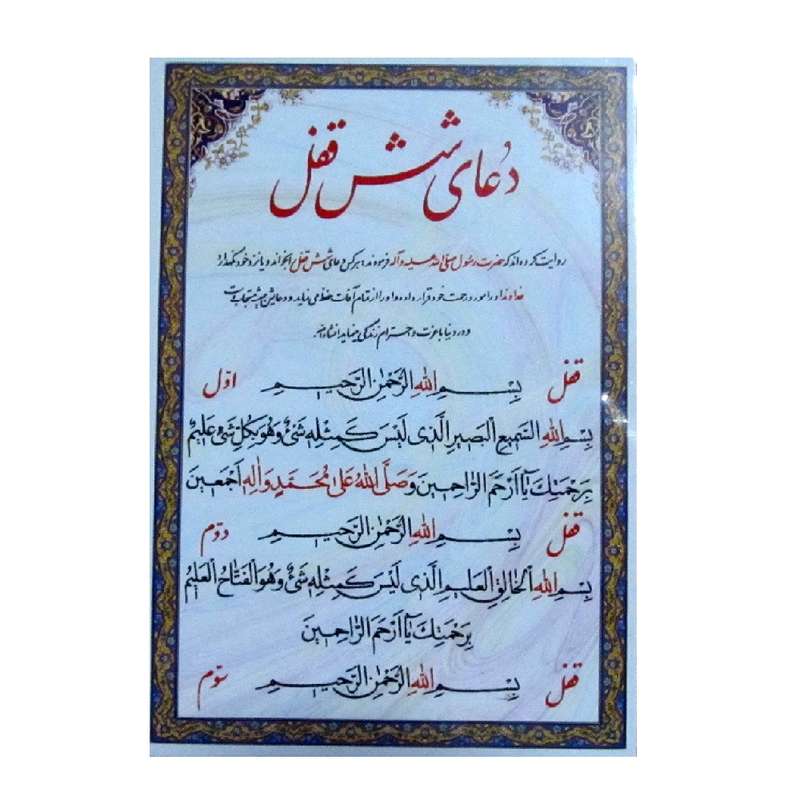 دُعای شش قفل
روایت کرده‌اند که حضرت رسول صلی الله علیه و آله فرمودند، هر کس دعای شش قفل را بخواند و یا نزد خود نگهدارد
خداوند او را مورد رحمت خود قرار داده و او را از تمام آفات حفظ می نماید و دعایش همیشه مستجاب است
و در دنیا با عزت و احترام زندگی مینماید انشاءالله.
قفل بِسْمِ اللهِ الرَّحْمٰنِ الرَّحیمِ اوّل
بِسْمِ اللهِ السَّمیعِ الْبَصیرِ الَّذی لَیْسَ کَمِثْلِهِ شَیْءٌ وَهُوَ بِکُلِّ شَیْءٍ عَلیمٌ
بِرَحْمَتِكَ یٰا اَرْحَمَ الرّٰاحِمینَ وَصَلَّی اللهُ عَلیٰ مُحَمَّدٍ وَ اٰلِهِ اَجْمَعینَ
قفل بِسْمِ اللهِ الرَّحْمٰنِ الرَّحیمِ دوّم
بِسْمِ اللهِ الْخٰالِقِ الْعَلیمِ الَّذی لَیْسَ کَمِثْلِهِ شَیْءٌ وَهُوَ الْفَتّٰاحُ الْعَلیمُ
بِرَحْمَتِكَ یٰا اَرْحَمَ الرّٰاحِمینَ
قفل بِسْمِ اللهِ الرَّحْمٰنِ الرَّحیمِ سوّم